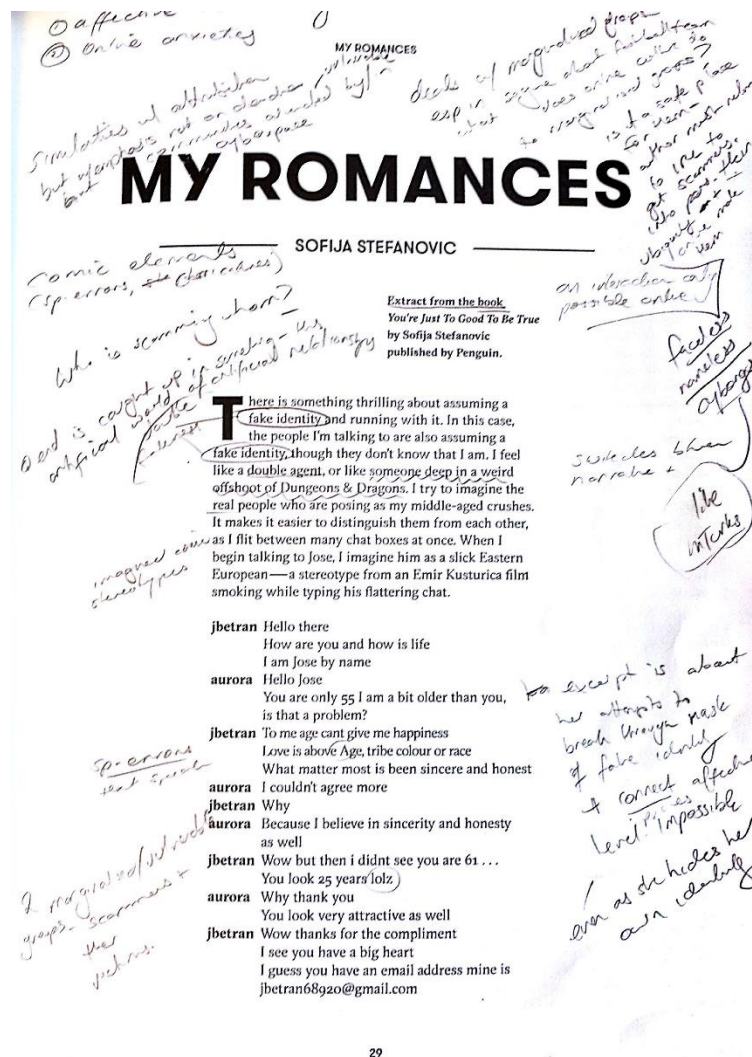 ① affective
② online anxieties
MY ROMANCES
similarities w/ attribution
but emphasis not on
but communities
cyberspace
deals w/ marginalised groups
esp in scene about football team
what does online culture do
to marginalised groups?
is it a safe place
for them
MY ROMANCES
SOFIJA STEFANOVIC
comic elements
(sp. errors,
Who is scamming whom?
& end is caught up in
artificial world of artificial relationships
Extract from the book
You're Just To Good To Be True
by Sofija Stefanovic
published by Penguin.
an interaction only
possible online
faceless
nameless
cyborgs
switches btwn
narrative +
like
mTurks
There is something thrilling about assuming a
fake identity and running with it. In this case,
the people I'm talking to are also assuming a
fake identity, though they don't know that I am. I feel
like a double agent, or like someone deep in a weird
offshoot of Dungeons & Dragons. I try to imagine the
real people who are posing as my middle-aged crushes.
It makes it easier to distinguish them from each other,
as I flit between many chat boxes at once. When I
begin talking to Jose, I imagine him as a slick Eastern
European—a stereotype from an Emir Kusturica film
smoking while typing his flattering chat.
imagined comic
stereotypes
jbetran Hello there
How are you and how is life
I am Jose by name
aurora Hello Jose
You are only 55 I am a bit older than you,
is that a problem?
jbetran To me age cant give me happiness
Love is above Age, tribe colour or race
What matter most is been sincere and honest
aurora I couldn't agree more
jbetran Why
aurora Because I believe in sincerity and honesty
as well
jbetran Wow but then i didnt see you are 61 . . .
You look 25 years lolz
aurora Why thank you
You look very attractive as well
jbetran Wow thanks for the compliment
I see you have a big heart
I guess you have an email address mine is
jbetran68920@gmail.com
sp. errors
that speak
2 marginalised/vulnerable
groups - scammers +
their
victims.
excerpt is about
her attempts to
break through mask
of fake identity
+ connect affective
level. Impossible
even as she hides her
own identity
29